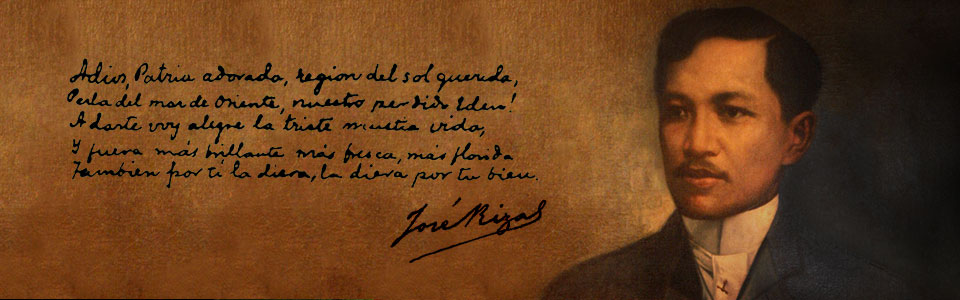 Adios, Patria adorada, region del sol querida,
Perla del mar de Oriente, nuestro perdido Eden!
A darte voy alegre la triste mustia vida,
Y fuera más brillante más fresca, más florida
También por ti la diera, la diera por tu bien.
José Rizal